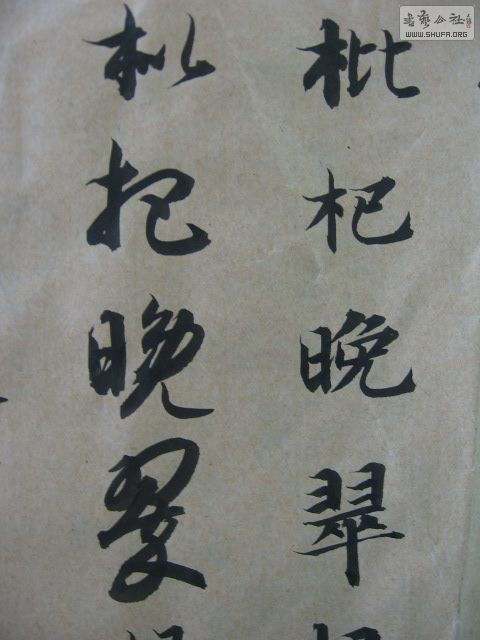 枇杷晚翠
枇杷晚翠
書藝公社
WWW.SHUFA.ORG